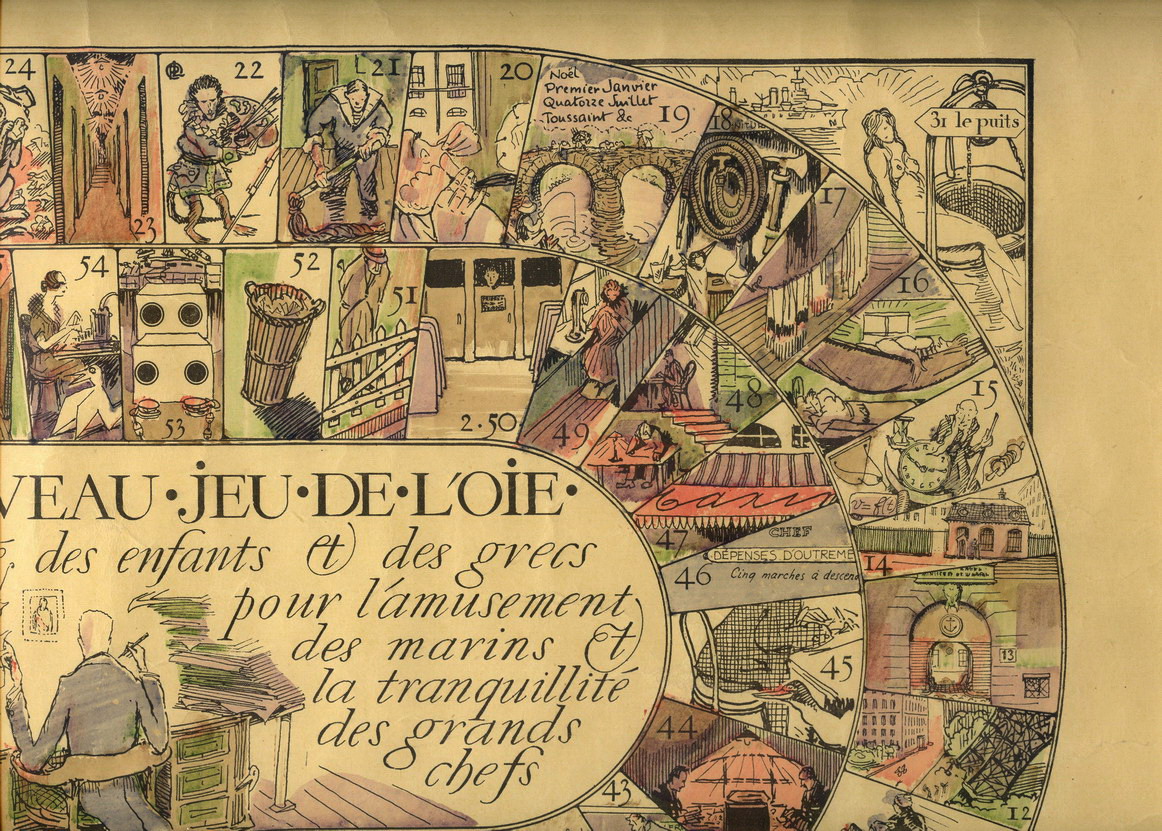 24
22
21
20
Noël
Premier Janvier
Quatorze Juillet
Toussaint &c
19
18
31 le puits
17
23
16
54
52
51
15
53
2.50
49
48
VEAU·JEU·DE·L'OIE·
des enfants et des grecs
pour l'amusement
des marins et
la tranquillité
des grands
chefs
Taxis
47
CHEF
DÉPENSES D'OUTREME
46
Cinq marches à descend
14
13
45
44
43
12